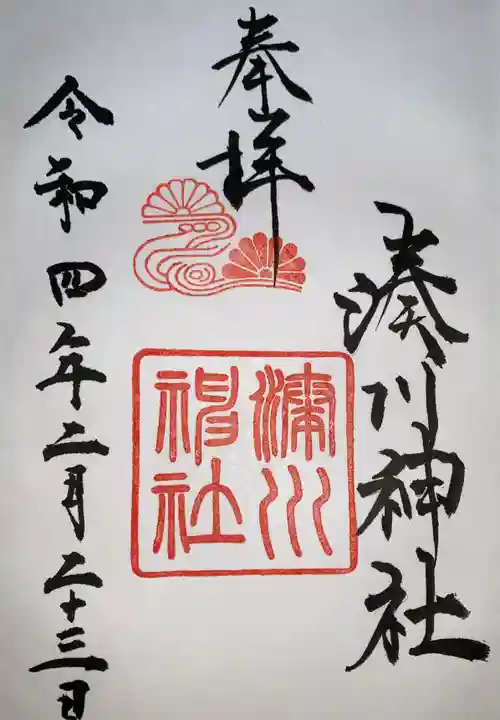 奉拝
湊川神社
湊川神社
令和四年二月二十三日